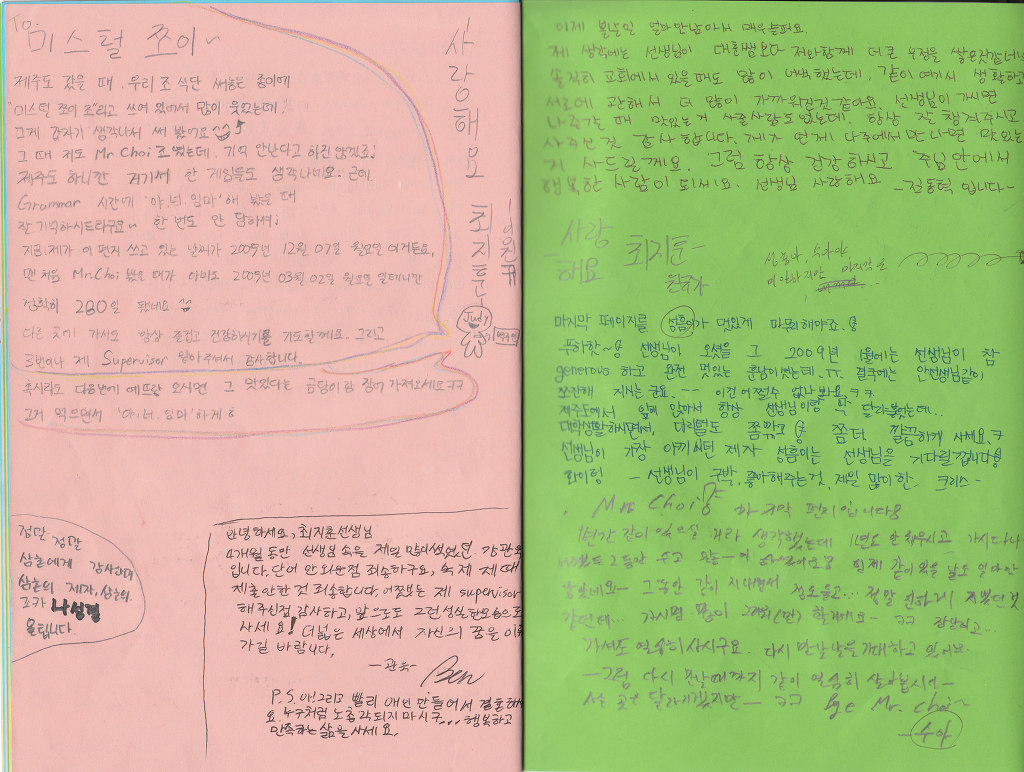 To.
미스털 쪼이~
제주도 갔을 때, 우리 조 식단 써놓은 종이에
"미스털 쪼이 조"라고 쓰여 있어서 많이 웃었는데!
그게 갑자기 생각나서 써 봤어요
그 때 저도 Mr Choi 조였는데, 기억 안난다고 하진 않겠죠!
제주도 하니깐 거기서 한 게임들도 생각나네요. 근데
Grammar 시간에 '야, 너, 임마' 해 봤을 때
잘 기억하시드라구요~ 한 번도 안 당하셔!
지금 제가 이 편지 쓰고 있는 날짜가 2009년 12월 07일 월요일 이거든요,
맨 처음 Mr.Choi 봤을 때가 아마도 2009년 03월 02일 월요일 일테니깐
정확히 280일 됐네요
다른 곳에 가셔도 항상 즐겁고 건강하시기를 기도할게요. 그리고
제 Supervisor 맡아주셔서 감사합니다.
혹시라도 다음번에 예뜨랑 오시면 그 맛있다는 곰탕이랑 같이 가져오세요 ㅋㅋ
그거 먹으면서 '야, 너, 임마' 하게
사랑해요
최지훈
Judy
정말 정말
삼촌에게 감사하며
삼촌의 제자, 삼촌의
조카 나성결
올립니다.
안녕하세요, 최지훈선생님
4개월 동안 선생님 속을 제일 많이 썩였던 강관욱
입니다. 단어 안외운점 죄송하구요, 숙제 제때
제출 안한 것 죄송합니다. 어쨋든 제 supervisor
해주신점 감사하고, 앞으로도 그런 성실한 모습으로
사세요! 더 넓은 세상에서 자신의 꿈을 이뤄
가길 바랍니다.
-관욱-
Ben
P.S. 아! 그리고 빨리 애인 만들어서 결혼해
요. 누구처럼 노총각되지 마시구... 행복하고
만족하는 삶을 사세요.
이제 볼날일 얼마 안남아서 매우 슬퍼요
제 생각에는 선생님이 다른쌤보다 저와함께 더 큰 우정을 쌓은것같더니
솔직히 교회에서 있을때도 많이 어색했는데, 같이 여기서 생활하고
서로에 관해서 더 많이 가까워진것 같아요. 선생님이 가시면
나주갔을 때 맛있는거 사줄사람도 없는데. 항상 잘 챙겨주시고
사주신것 감사합니다. 제가 언제 나주에서 만나면 맛있는
거 사드릴게요. 그럼 항상 건강하시고 주님안에서
행복한 사람이 되세요. 선생님 사랑해요 -김동혁 입니다-
사랑
해요
최지훈-
마지막
마지막 페이지를 성흠이가 멋있게 마무리해야죠.
푸하핫~ 선생님이 오셨을 그 2009년 1월에는 선생님이 참
generous 하고 완전 멋있는 훈남이셨는데.ㅠㅠ. 결국에는 안선생님같이
쪼잔해 지시는군요.-- 이건 어쩔수 없나봐요.ㅋㅋ
제주도에서 옆에 앉아서 항상 선생님이랑 딱 달라붙었는데...
대학생활하시면서, 다리털도 쫌 깎고 쫌더 깔끔하게 사세요.ㅋ
선생님이 가장 아끼시던 제자 성흠이는 선생님을 기다릴겁니다
화이팅 - 선생님이 구박, 좋아해주는것, 제일 많이한 크리스-
Mr. Choi
마지막 편지입니다
1년간 같이 있으실 거라 생각했는데 1년도 안채우시고 가시다니
같이있을 날도 얼마안
그동안 같이 지내면서 정도들고... 정말
가시면 많이
가셔도 열심히 사시구요. 다시 만날 날을 기대하고 있어요
-그럼 다시 만날때까지 같이 열심히 살아봅시다-
서있는 곳은 달라지겠지만- ㅋㅋ Bye Mr. Choi~
-수아